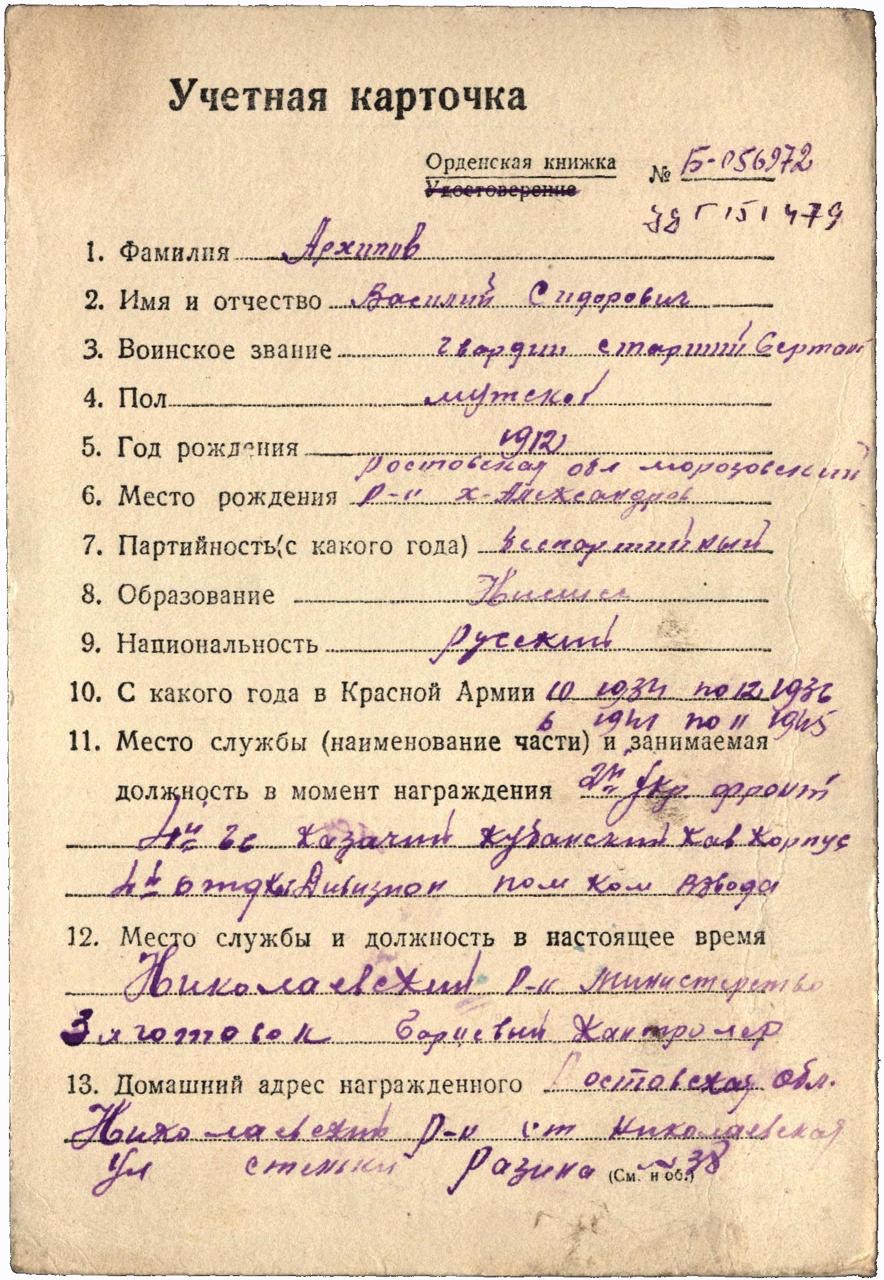 Учетная карточка
Орденская книжка
Удостоверение
№ Б-056972
уд Г 151479
1. Фамилия Архипов
2. Имя и отчество Василий Сидорович
3. Воинское звание гвардии старший Сержант
4. Пол мужской
5. Год рождения 1912
Ростовская обл морозовский
6. Место рождения р-н х-Александров
7. Партийность(с какого года) беспартийный
8. Образование Нисшее
9. Национальность Русский
10. С какого года в Красной Армии 10 1934 по 12 1936
6 1941 по 11 1945
11. Место службы (наименование части) и занимаемая
должность в момент награждения 2й Укр. фронт
4й гв Казачий Кубанский Кав Корпус
4й отд Дивизион пом ком взвода
12. Место службы и должность в настоящее время
Николаевский р-н министерство
Заготовок Контролер
13. Домашний адрес награжденного Ростовская обл.
Николаевский р-н ст Николаевская
ул стеньки Разина №38
(См. н об.)